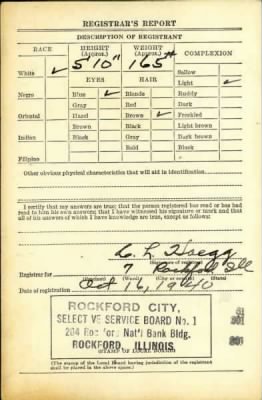 REGISTRAR'S REPORT
DESCRIPTION OF REGISTRANT
RACE HEIGHT (Approx.) WEIGHT (Approx.) COMPLEXION
5'10" 165#
White ✓ Sallow
EYES HAIR Light ✓
Negro Blue ✓ Blonde Ruddy
Gray Red Dark
Oriental Hazel Brown ✓ Freckled
Brown Black Light brown
Indian Black Gray Dark brown
Bald Black
Filipino
Other obvious physical characteristics that will aid in identification
I certify that my answers are true; that the person registered has read or has had
read to him his own answers; that I have witnessed his signature or mark and that
all of his answers of which I have knowledge are true, except as follows:
(Signature of registrar)
Registrar for 7 Rockford Ill
(Precinct) (Ward) (City or county) (State)
Date of registration Oct 16, 1940
ROCKFORD CITY,
SELECTIVE SERVICE BOARD No. 1
204 Nat'l Bank Bldg.
ROCKFORD, ILLINOIS.
STAMP OF LOCAL BOARD
(The stamp of the Local Board having jurisdiction of the registrant
shall be placed in the above space.)